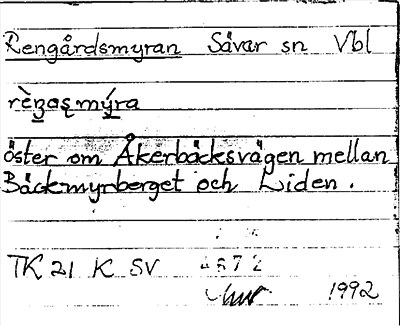 Rengårdsmyran Sävar sn Vbl
öster om Åkerbäcksvägen mellan
Bäckmyrberget och Liden.
TK 21 K SV 4672
1992